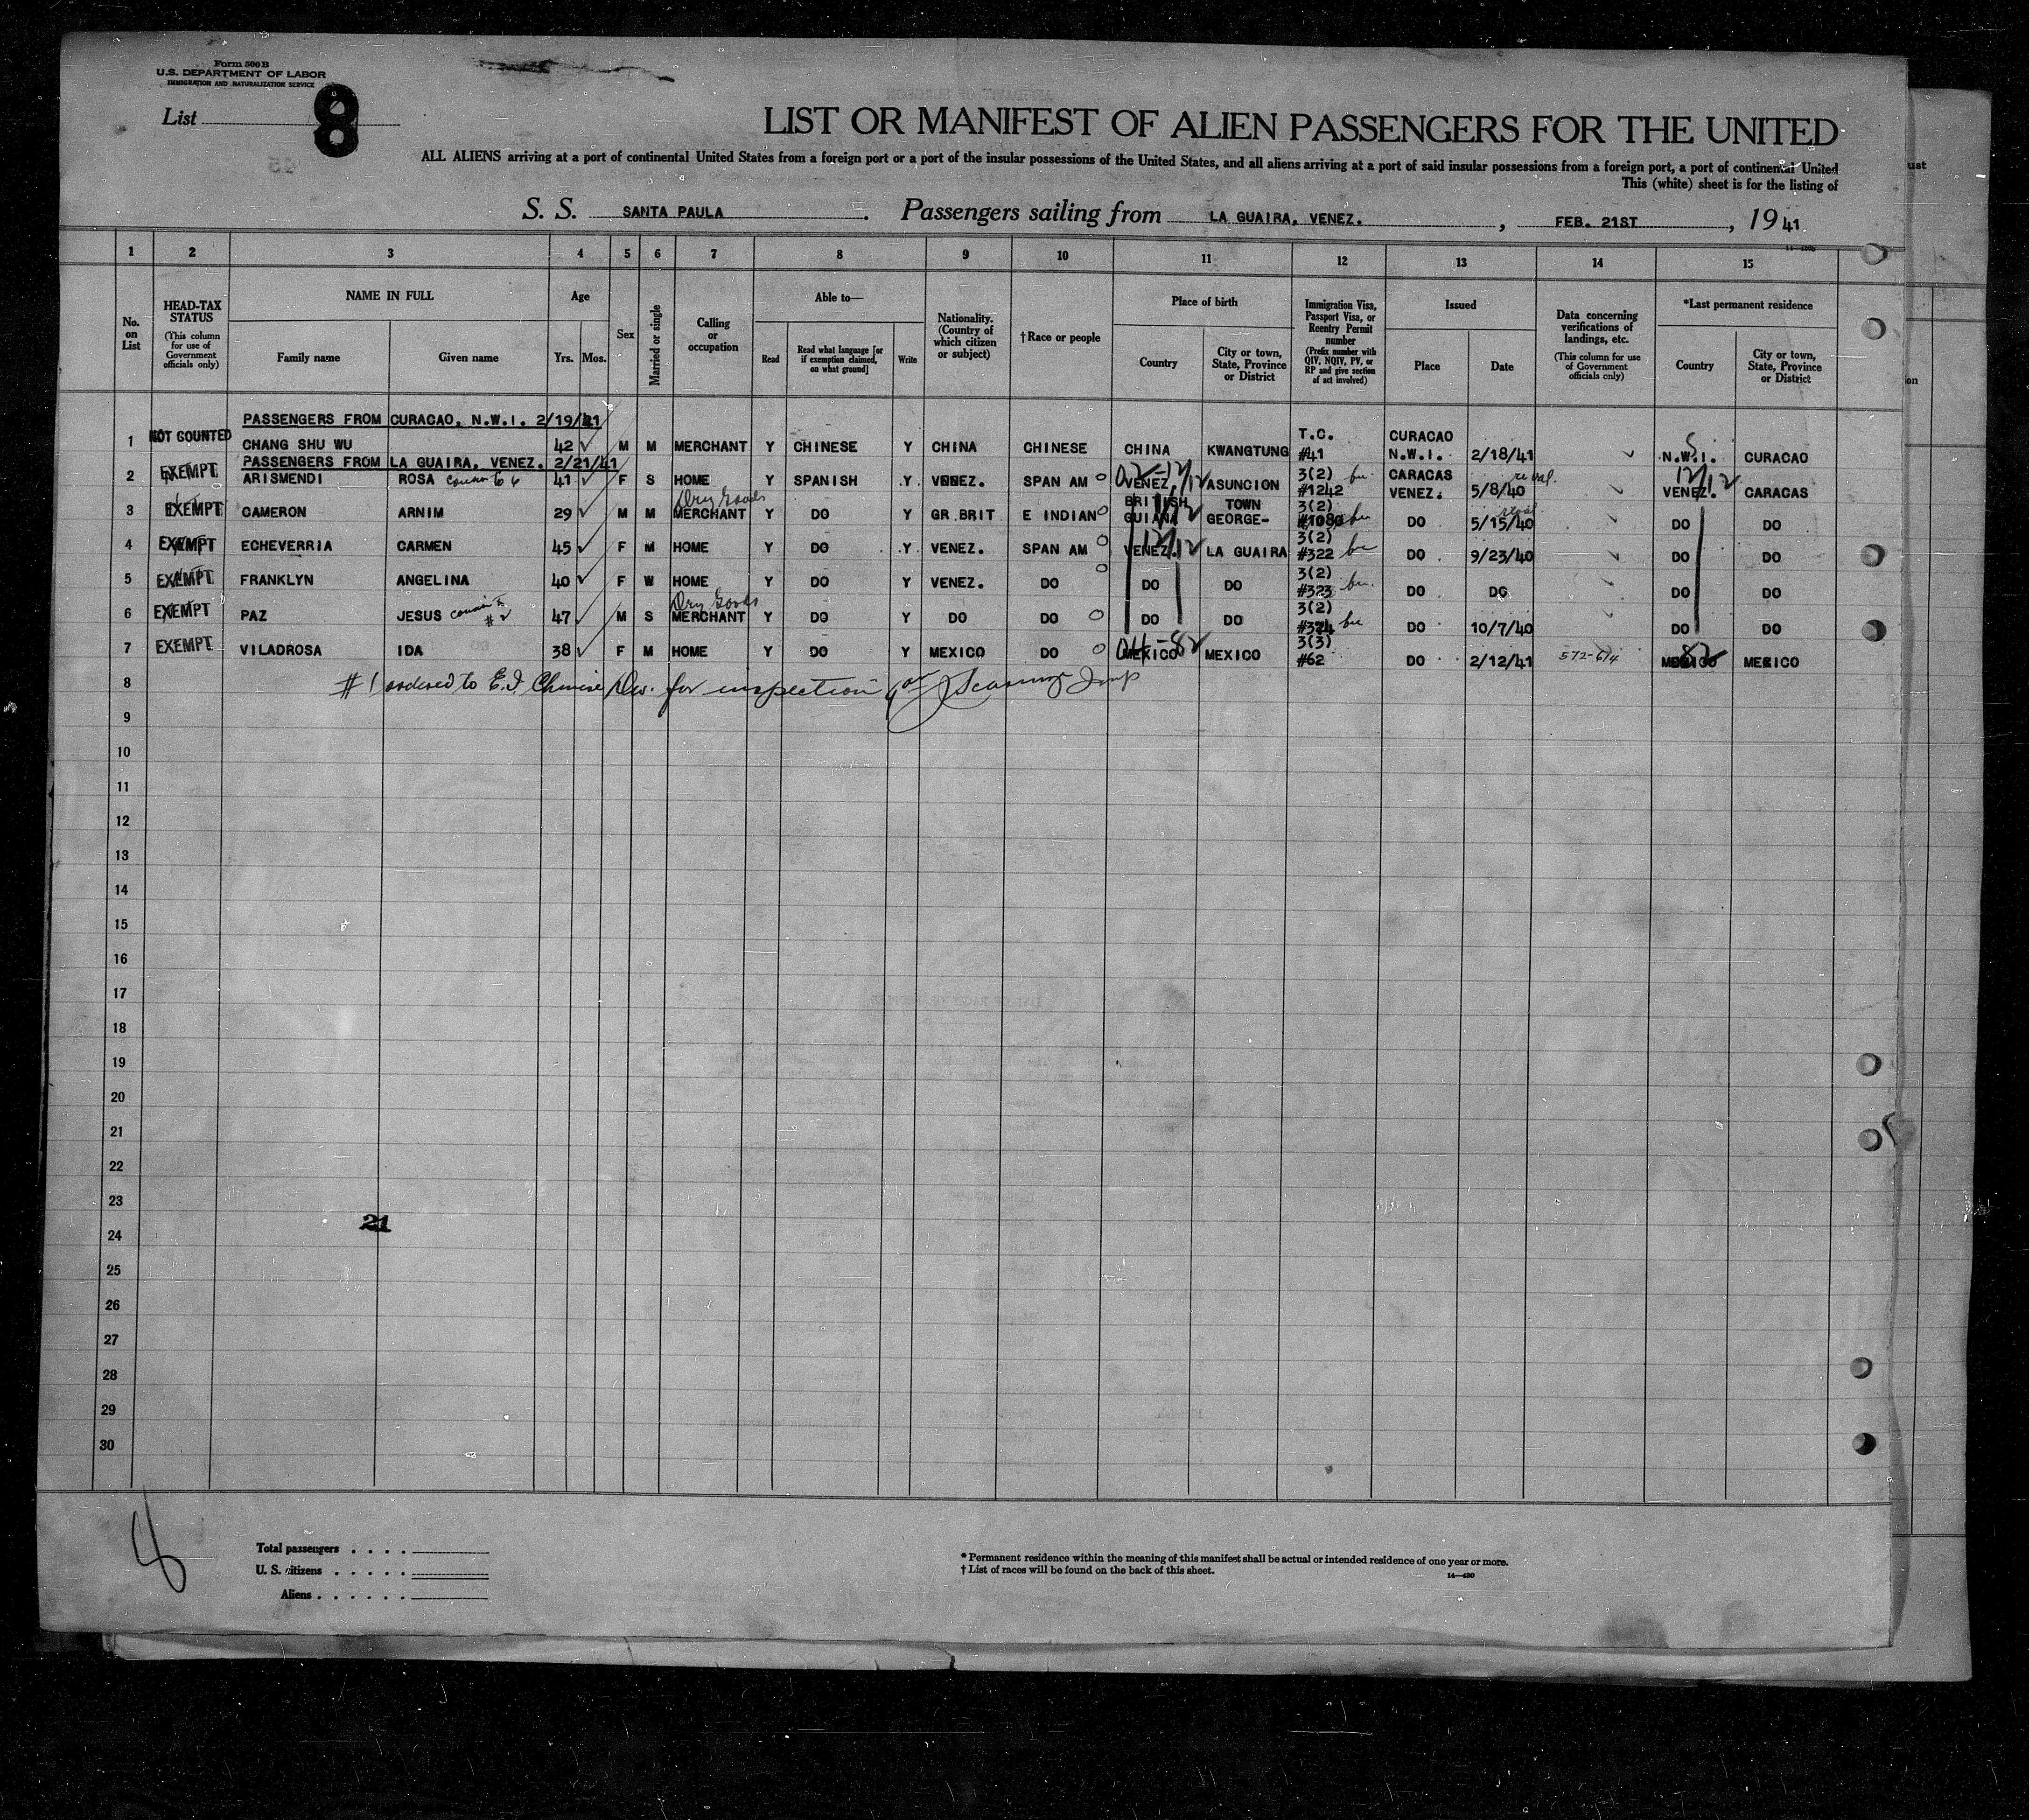 Form 500 B
U.S. DEPARTMENT OF LABOR
IMMIGRATION AND NATURALIZATION SERVICE
List 8
LIST OR MANIFEST OF ALIEN PASSENGERS FOR THE UNITED
ALL ALIENS arriving at a port of continental United States from a foreign port or a port of the insular possessions of the United States, and all aliens arriving at a port of said insular possessions from a foreign port, a port of continental United
This (white) sheet is for the listing of
S. S. SANTA PAULA. Passengers sailing from LA GUAIRA, VENEZ., FEB. 21ST, 1941
1 2 3 4 5 6 7 8 9 10 11 12 13 14 15
No. on List
HEAD-TAX STATUS (This column for use of Government officials only)
NAME IN FULL
Family name Given name
Age
Yrs. Mos.
Sex
Married or single
Calling or occupation
Able to—
Read
Read what language [or if exemption claimed, on what ground]
Write
Nationality. (Country of which citizen or subject)
†Race or people
Place of birth
Country
City or town, State, Province or District
Immigration Visa, Passport Visa, or Reentry Permit number (Prefix number with QIV, NQIV, PV, or RP and give section of act involved)
Issued
Place Date
Data concerning verifications of landings, etc. (This column for use of Government officials only)
*Last permanent residence
Country
City or town, State, Province or District
PASSENGERS FROM CURACAO, N.W.I. 2/19/41
1 NOT COUNTED CHANG SHU WU 42 M M MERCHANT Y CHINESE Y CHINA CHINESE CHINA KWANGTUNG T.C. #41 CURACAO N.W.I. 2/18/41 N.W.I. CURACAO
PASSENGERS FROM LA GUAIRA, VENEZ. 2/21/41
2 EXEMPT ARISMENDI ROSA cousin to 6 41 F S HOME Y SPANISH Y VENEZ. SPAN AM VENEZ. ASUNCION 3(2) #1242 CARACAS VENEZ. 5/8/40 VENEZ. CARACAS
3 EXEMPT CAMERON ARNIM 29 M M Dry Goods MERCHANT Y DO Y GR BRIT E INDIAN BRITISH GUIANA TOWN GEORGE- 3(2) #1080 DO 5/15/40 DO DO
4 EXEMPT ECHEVERRIA CARMEN 45 F M HOME Y DO Y VENEZ. SPAN AM VENEZ. LA GUAIRA 3(2) #322 DO 9/23/40 DO DO
5 EXEMPT FRANKLYN ANGELINA 40 F W HOME Y DO Y VENEZ. DO DO DO 3(2) #323 DO DO DO DO
6 EXEMPT PAZ JESUS cousin to #2 47 M S Dry Goods MERCHANT Y DO Y DO DO DO DO 3(2) #324 DO 10/7/40 DO DO
7 EXEMPT VILADROSA IDA 38 F M HOME Y DO Y MEXICO DO MEXICO MEXICO 3(3) #62 DO 2/12/41 572-614 MEXICO MEXICO
8 #1 ordered to E.I. Chinese Div. for inspection Insp
9
10
11
12
13
14
15
16
17
18
19
20
21
22
23
21
24
25
26
27
28
29
30
8
Total passengers
U. S. citizens
Aliens
* Permanent residence within the meaning of this manifest shall be actual or intended residence of one year or more.
† List of races will be found on the back of this sheet.
14—430